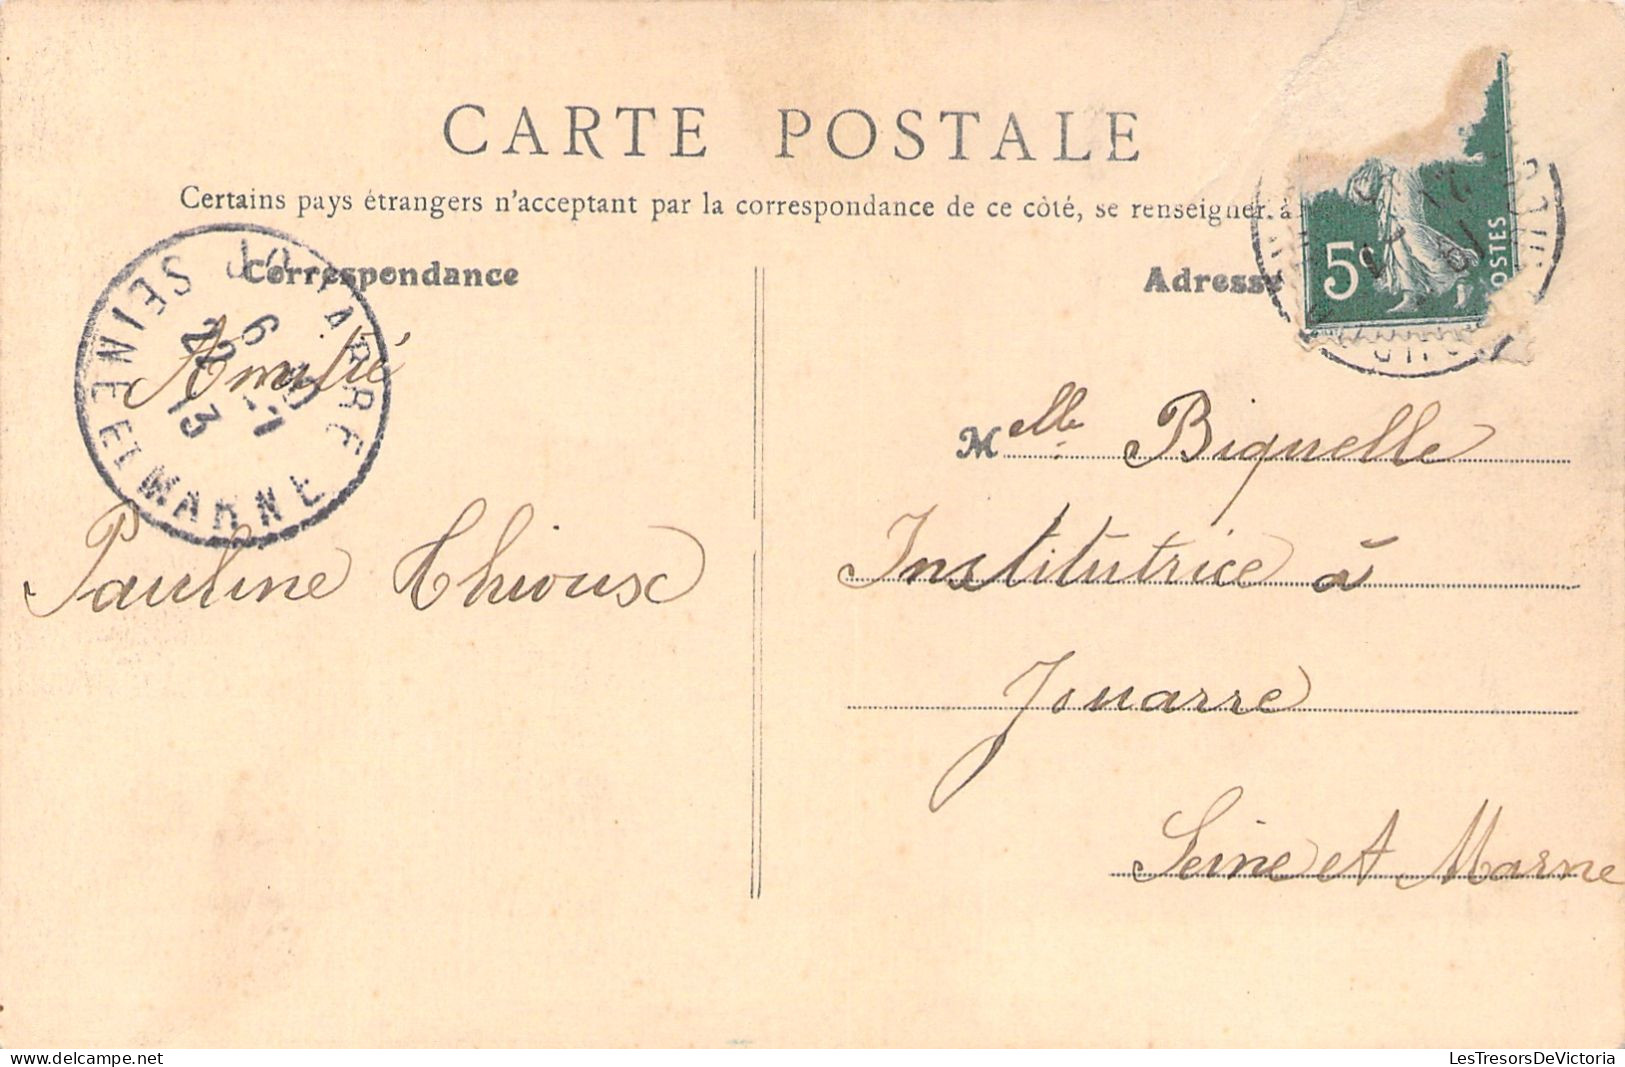 CARTE POSTALE
Certains pays étrangers n'acceptant par la correspondance de ce côté, se renseigner à
Correspondance
Adresse
5c
POSTES
JOUARRE
6
22 - 7
13
SEINE ET MARNE
Amitié
Pauline Thioux
Melle Biquelle
Institutrice à
Jouarre
Seine et Marne
LesTresorsDeVictoria